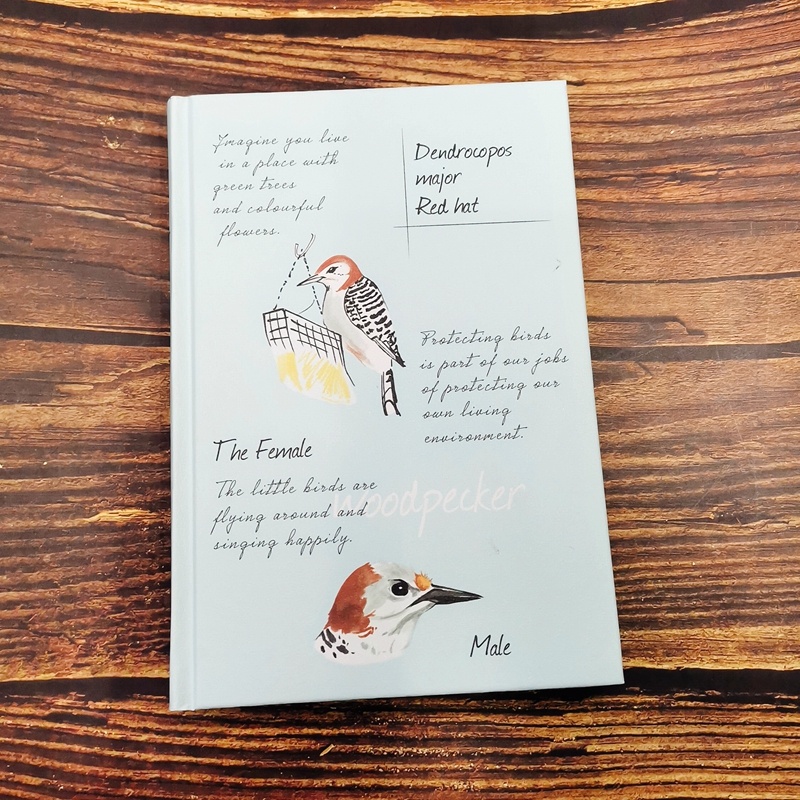 Imagine you live
in a place with
green trees
and colourful
flowers.
Dendrocopos
major
Red hat
Protecting birds
is part of our jobs
of protecting our
own living
environment.
The Female
The little birds are
flying around and
singing happily.
Woodpecker
Male